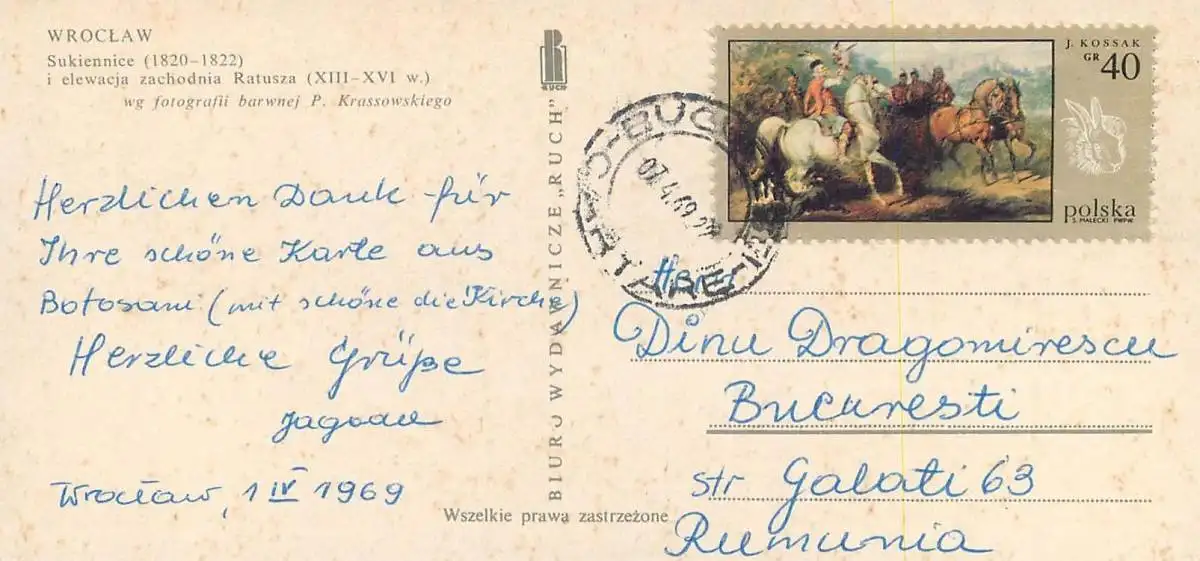 WROCŁAW
Sukiennice (1820–1822)
i elewacja zachodnia Ratusza (XIII–XVI w.)
wg fotografii barwnej P. Krassowskiego
Herzlichen Dank für
Ihre schöne Karte aus
Botosani (mit schöne die Kirche)
Herzliche Grüße
Wrocław, 1 IV 1969
RUCH
BIURO WYDAWNICZE „RUCH”
Wszelkie prawa zastrzeżone
J. KOSSAK
GR 40
polska
S. MAŁECKI PWPW
07.4.69
Herrn
Dinu Dragomirescu
Bucuresti
str Galati 63
Rumunia